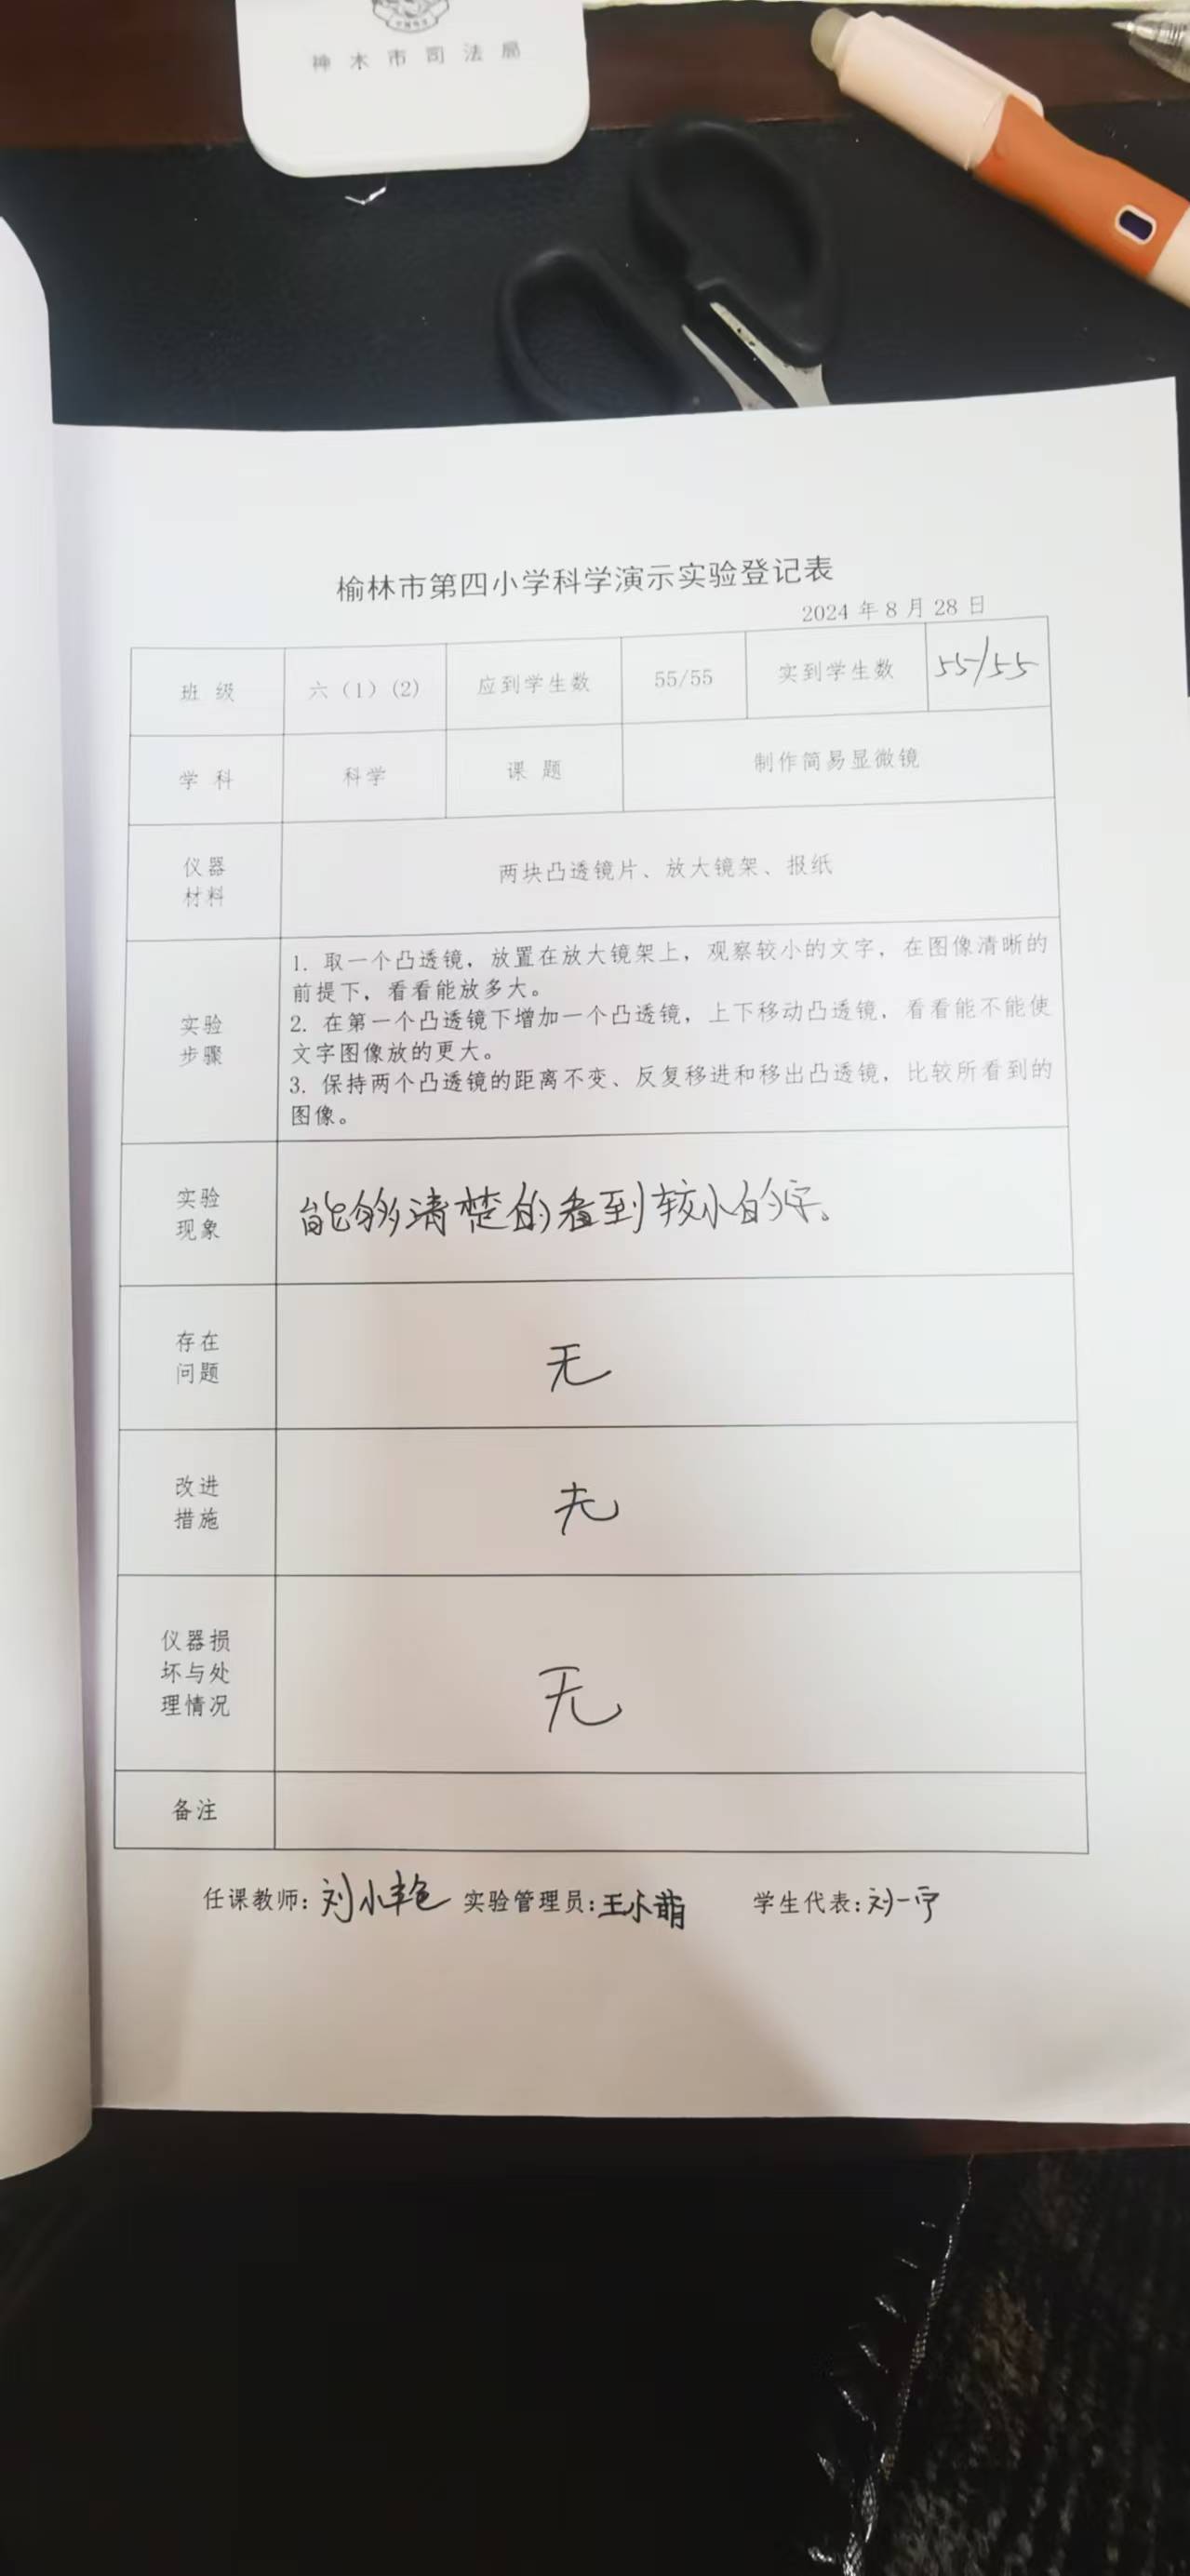 神木市司法局
榆林市第四小学科学演示实验登记表
2024 年 8 月 28 日
班 级 六（1）(2) 应到学生数 55/55 实到学生数 55/55
学 科 科学 课 题 制作简易显微镜
仪器
材料
两块凸透镜片、放大镜架、报纸
实验
步骤
1. 取一个凸透镜，放置在放大镜架上，观察较小的文字，在图像清晰的
前提下，看看能放多大。
2. 在第一个凸透镜下增加一个凸透镜，上下移动凸透镜，看看能不能使
文字图像放的更大。
3. 保持两个凸透镜的距离不变、反复移进和移出凸透镜，比较所看到的
图像。
实验
现象
能够清楚的看到较小的字。
存在
问题
无
改进
措施
无
仪器损
坏与处
理情况
无
备注
任课教师: 刘小艳 实验管理员: 王小萌 学生代表: 刘一宁